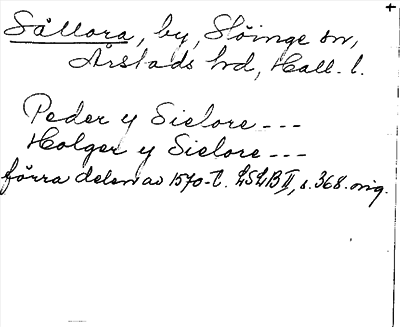 Sållora, by, Slöinge sn,
Årstads hd, Hall. l.
Peder y Sielore ---
Holger y Sielore ---
förra delen av 1570-t. LSLB II, s. 368. orig.